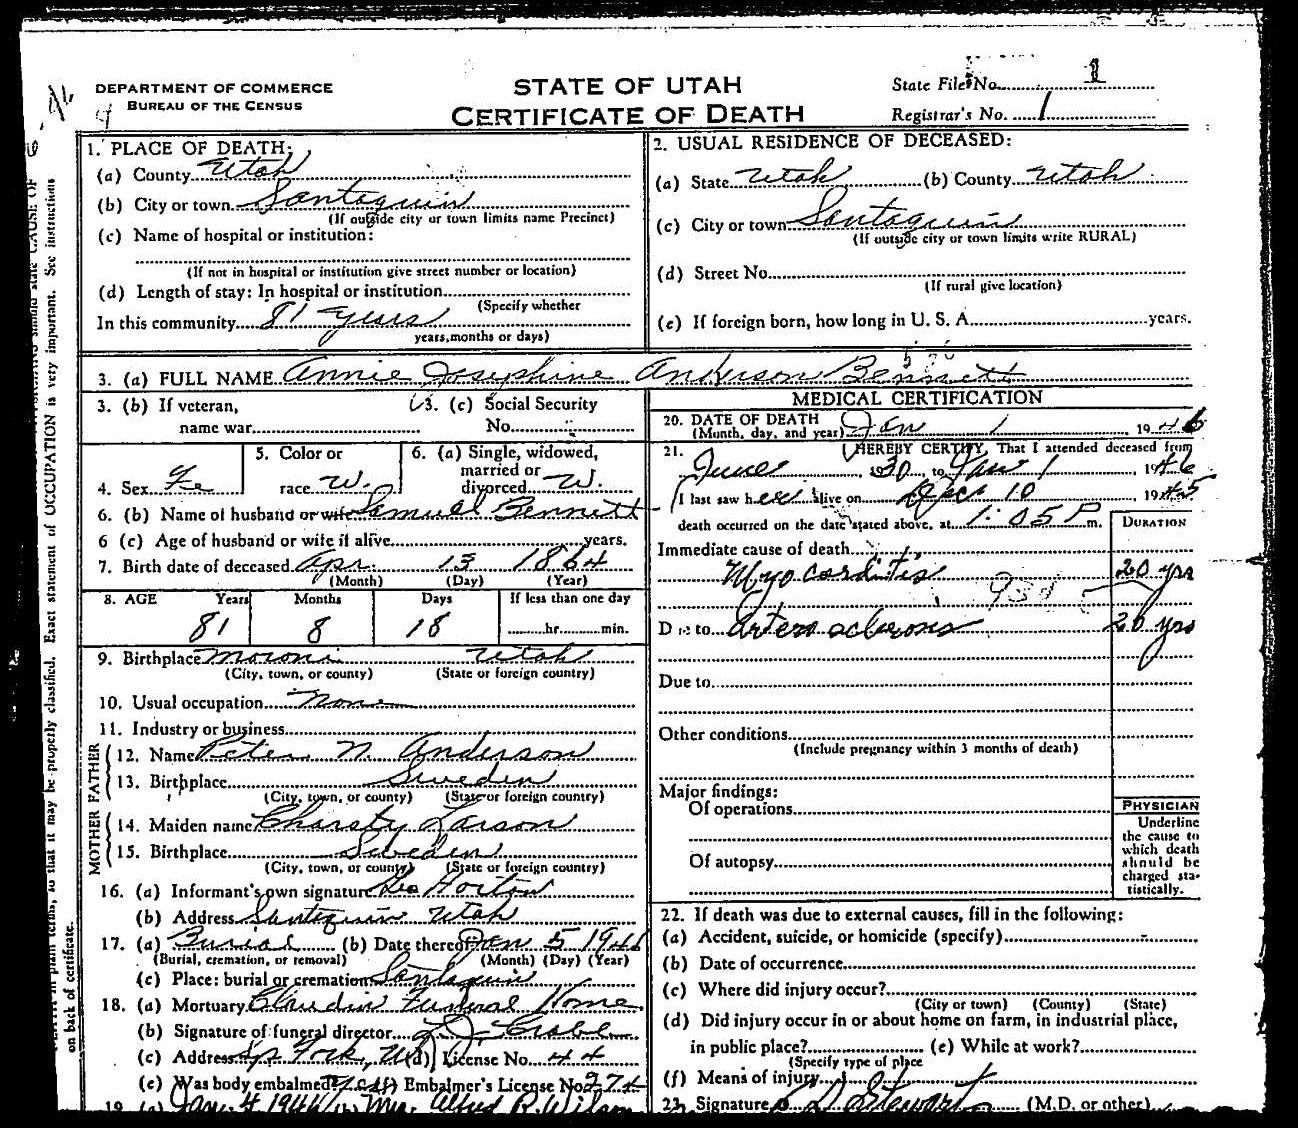 DEPARTMENT OF COMMERCE
BUREAU OF THE CENSUS
STATE OF UTAH
CERTIFICATE OF DEATH
State File No. 1
Registrar's No. 1
1. PLACE OF DEATH:
(a) County Utah
(b) City or town Santaquin
(If outside city or town limits name Precinct)
(c) Name of hospital or institution:
(If not in hospital or institution give street number or location)
(d) Length of stay: In hospital or institution
(Specify whether
In this community 81 years
years, months or days)
2. USUAL RESIDENCE OF DECEASED:
(a) State Utah (b) County Utah
(c) City or town Santaquin
(If outside city or town limits write RURAL)
(d) Street No.
(If rural give location)
(e) If foreign born, how long in U. S. A. years.
3. (a) FULL NAME Annie Josephine Anderson Bennett
3. (b) If veteran,
name war
3. (c) Social Security
No.
4. Sex Fe
5. Color or
race W.
6. (a) Single, widowed,
married or
divorced W.
6. (b) Name of husband or wife Samuel Bennett
6 (c) Age of husband or wife if alive years.
7. Birth date of deceased Apr 13 1864
(Month) (Day) (Year)
8. AGE Years Months Days If less than one day
81 8 18 hr. min.
9. Birthplace Moroni Utah
(City, town, or county) (State or foreign country)
10. Usual occupation None
11. Industry or business
FATHER
12. Name Peter N. Anderson
13. Birthplace Sweden
(City, town, or county) (State or foreign country)
MOTHER
14. Maiden name Charsty Larson
15. Birthplace Sweden
(City, town, or county) (State or foreign country)
16. (a) Informant's own signature Geo Horton
(b) Address Santaquin Utah
17. (a) Burial (b) Date thereof Jan 5 1946
(Burial, cremation, or removal) (Month) (Day) (Year)
(c) Place: burial or cremation Santaquin
18. (a) Mortuary Claudin Funeral Home
(b) Signature of funeral director
(c) Address Sp Fork, U (d) License No. 44
(e) Was body embalmed? Yes (f) Embalmer's License No. 274
19. (a) Jan. 4 1946 (b) Mrs. Alfred R. Wilson
MEDICAL CERTIFICATION
20. DATE OF DEATH
(Month, day, and year) Jan 1 1946
21. I HEREBY CERTIFY, That I attended deceased from
June 1930 to Jan 1 1946
I last saw her alive on Dec 10, 1945
death occurred on the date stated above, at 1:05 P m.
DURATION
Immediate cause of death
Myocarditis 20 yrs
Due to Arterosclerosis 20 yrs
Due to
Other conditions
(Include pregnancy within 3 months of death)
Major findings:
Of operations
Of autopsy
PHYSICIAN
Underline
the cause to
which death
should be
charged sta-
tistically.
22. If death was due to external causes, fill in the following:
(a) Accident, suicide, or homicide (specify)
(b) Date of occurrence
(c) Where did injury occur?
(City or town) (County) (State)
(d) Did injury occur in or about home on farm, in industrial place,
in public place? (e) While at work?
(Specify type of place
(f) Means of injury
23. Signature Stewart (M.D. or other)
so that it may be properly classified. Exact statement of OCCUPATION is very important. See instructions
on back of certificate.